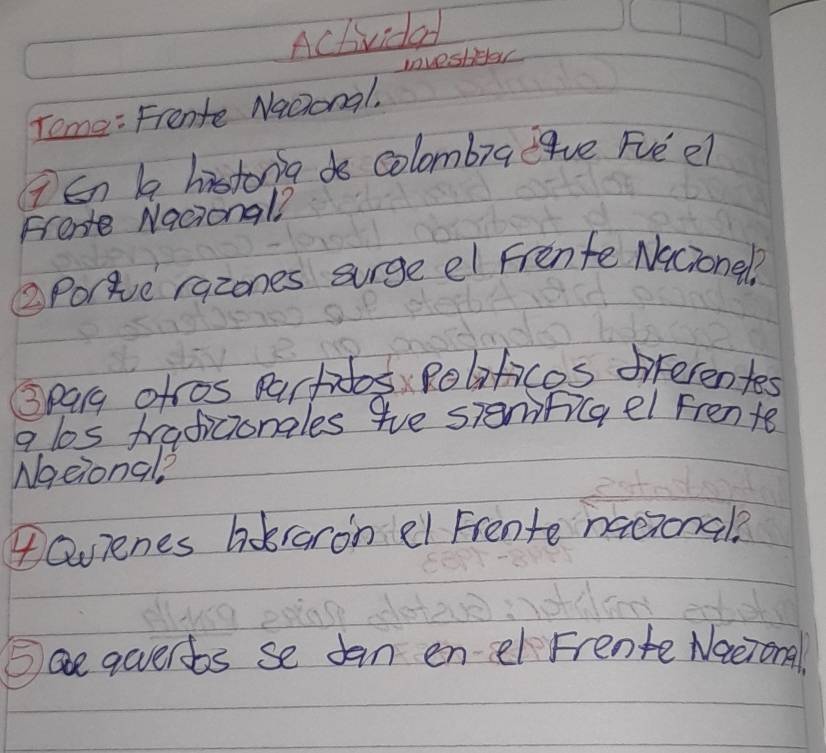 Actividad
investigar
Tema: Frente Nacional.
① En la historia de colombia ¿que Fué el
Frente Nacional?
② Porque razones surge el Frente Nacional?
③ para otros partidos x políticos diferentes
a los tradicionales que significa el Frente
Nacional?
④ Quienes liderarón el Frente nacional?
⑤ Que acuerdos se dan en el Frente Nacional?